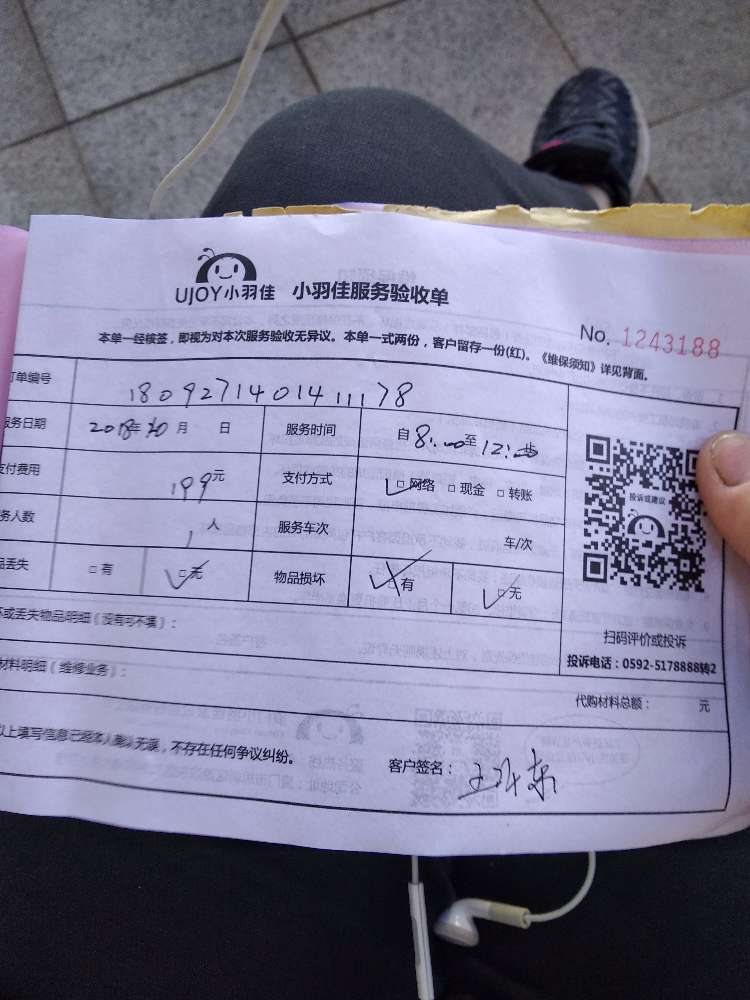 UJOY小羽佳 小羽佳服务验收单
No. 1243188
本单一经核签，即视为对本次服务验收无异议。本单一式两份，客户留存一份(红)。《维保须知》详见背面。
订单编号 180927140141178
服务日期 2018年 月 日 服务时间 自8:00至12:00
支付费用 199元 支付方式 □网络 □现金 □转账
服务人数 1人 服务车次 车/次
品丢失 □有 □无 物品损坏 □有 □无
投诉或建议
扫码评价或投诉
投诉电话：0592-5178888转2
坏或丢失物品明细（没有可不填）：
材料明细（维修业务）：
代购材料总额： 元
以上填写信息已经本人确认无误，不存在任何争议纠纷。
客户签名：